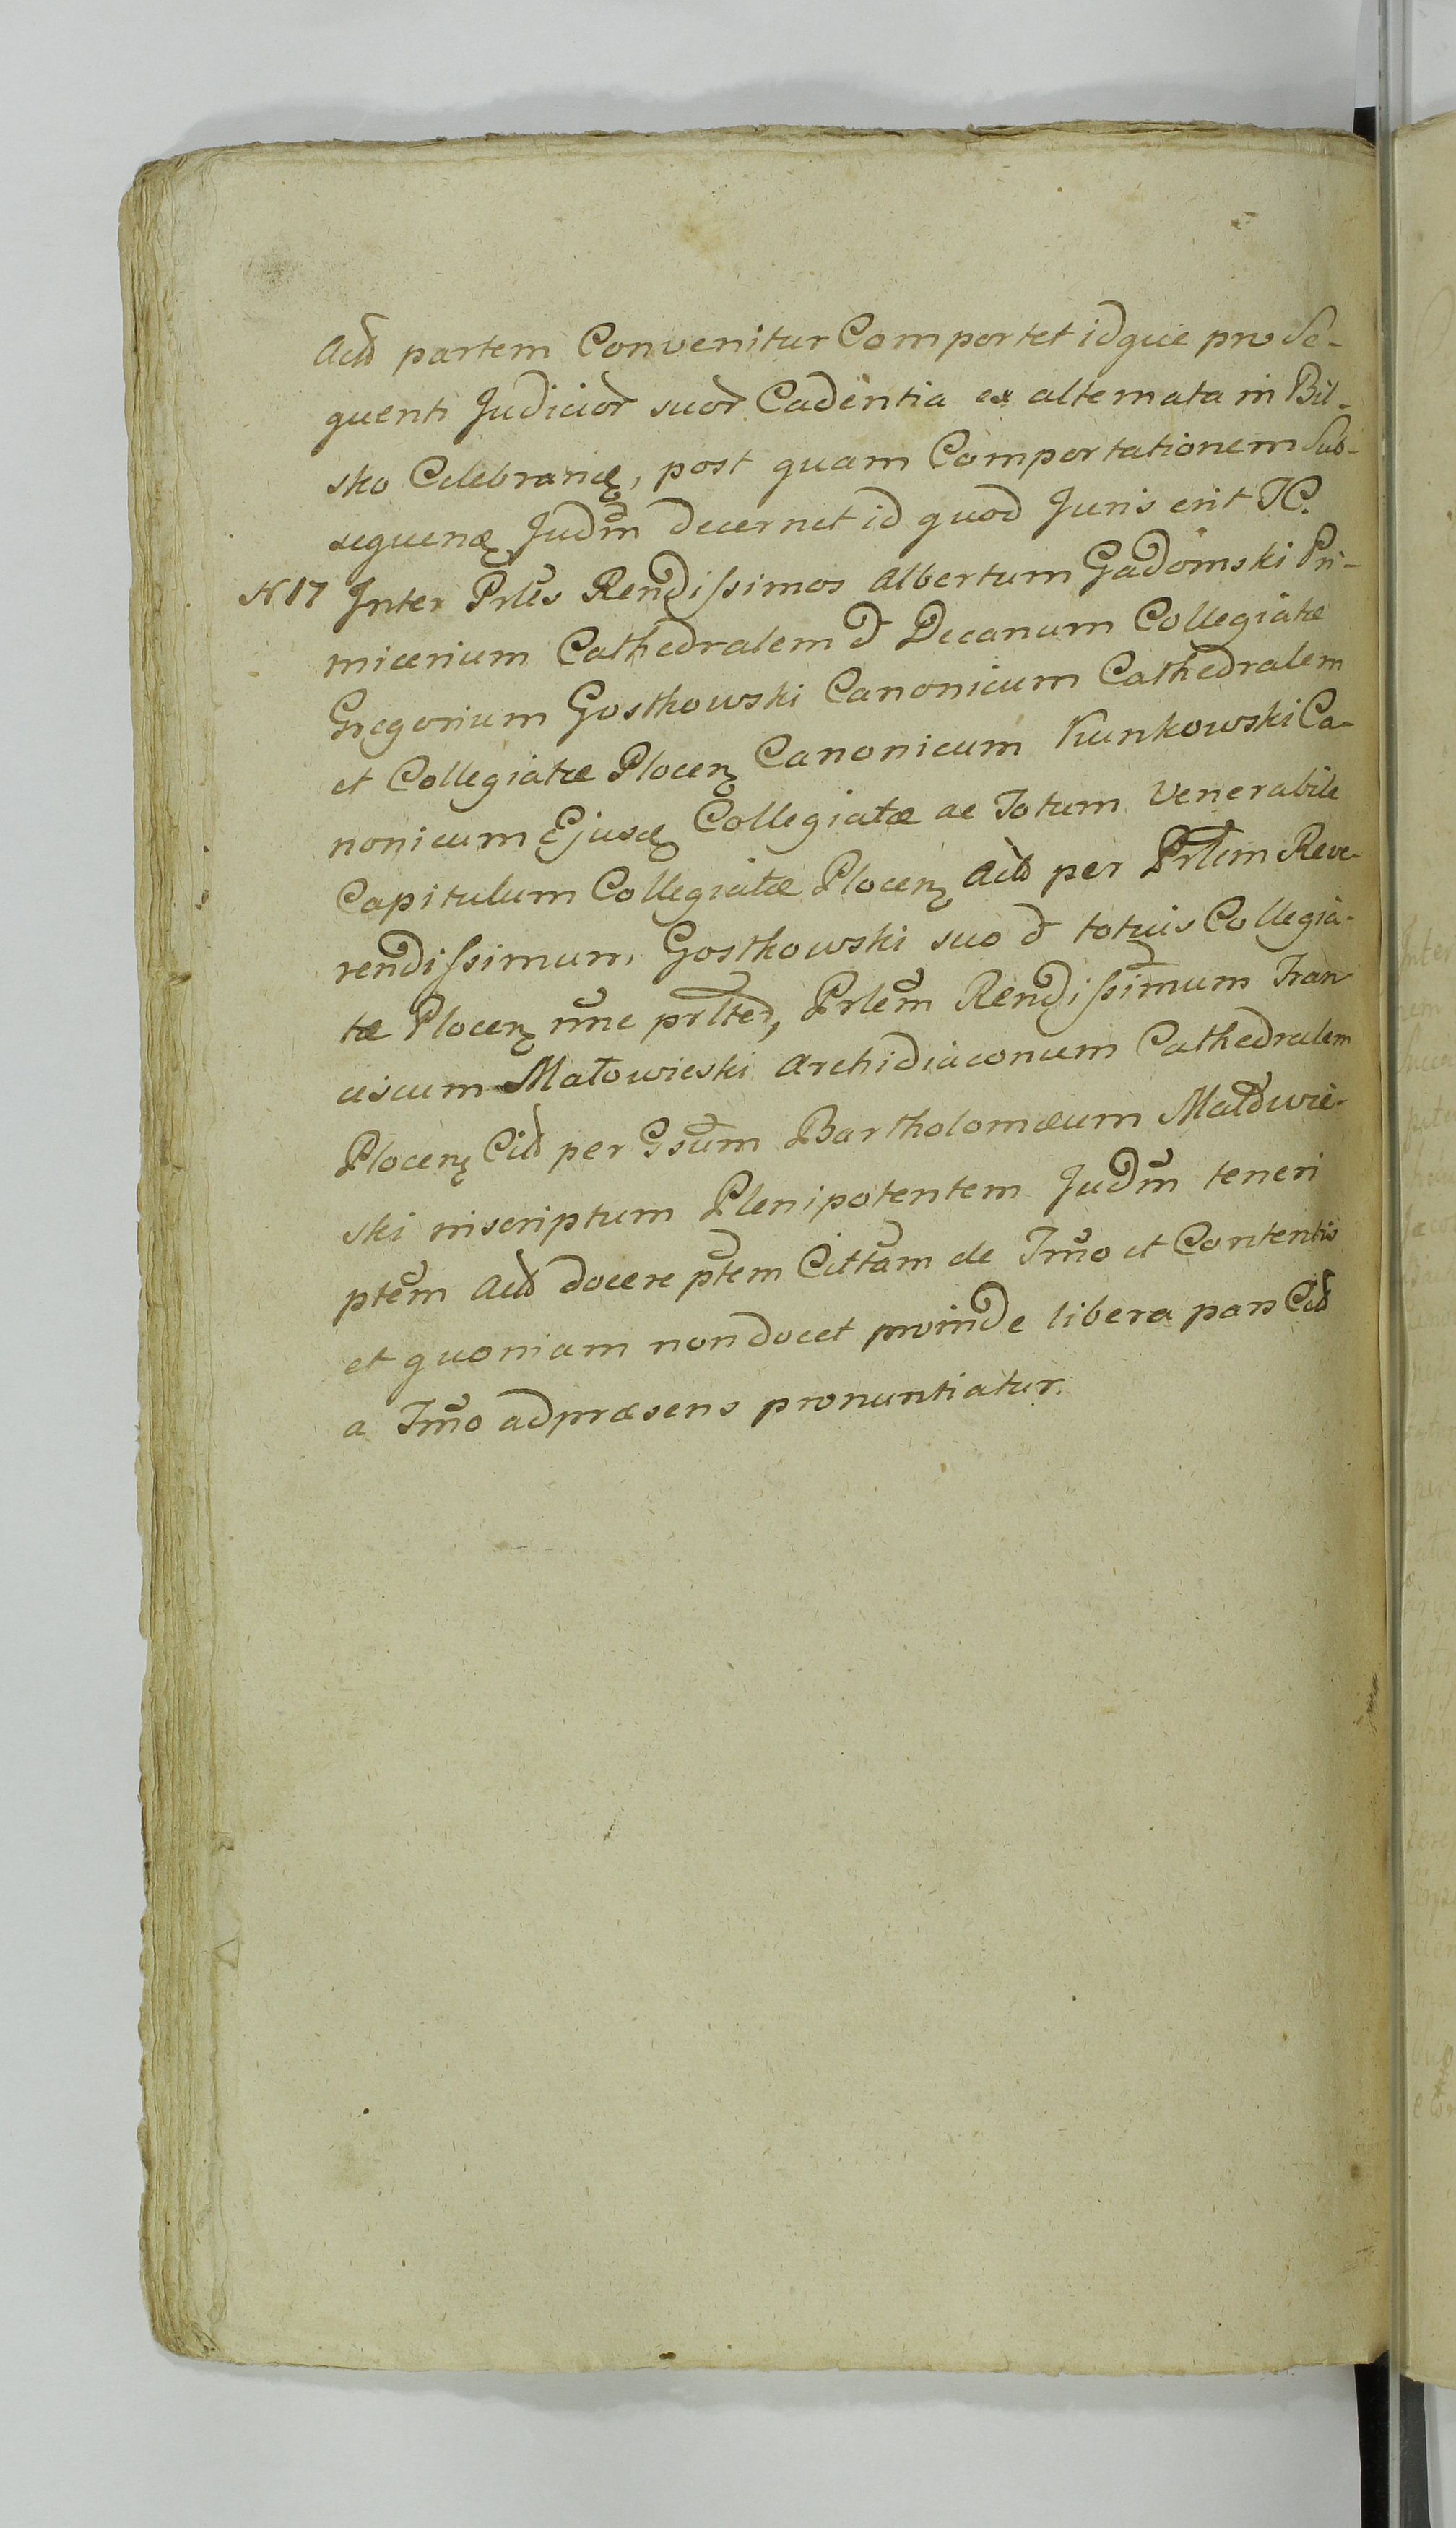 Actd partem Convenitur Comportet idque pro Se-
quenti Judicior suor Cadentia ex alternata in Biel-
sko Celebran, post quam Comportationem Sub-
sequen Judm decernet id quod Juris erit
N 17 Inter Prles Rendissimos Albertum Gadomski Pri-
micerium Cathedralem d Decanum Collegiatæ
Gregorium Gostkowski Canonicum Cathedralem
et Collegiatæ Plocen Canonicum Kunkowski Ca-
nonicum Ejusd Collegiatæ ac Totum Venerabile
Capitulum Collegiatæ Plocen Actd per Prlem Reve-
rendissimum Gostkowski suo d totius Collegia-
tæ Plocen nnc Prlem Rendissimum Fran
ciscum Małowieski Archidiaconum Cathedralem
Plocen Citd per Gsum Bartholomæum Małowie-
ski inscriptum Plenipotentem Judm teneri
ptem Actd docere ptem Cittam de Tmno et Contentis
et quoniam non docet proinde libera pars Citd
a Tmno ad præsens pronuntiatur.